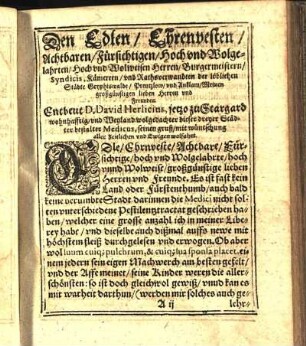 Den Edlen / Ehrenvesten /
Achtbaren / Fürsichtigen / Hoch vnd Wolge-
lahrten / Hoch vnd Wolweisen Herren / Burgermeistern /
Syndicis, Kämerern / vnd Rathsverwandten der löblichen
Städte Gryphiswalde / Prentzlow / vnd Anklam / Meinen
großgünstigen lieben Herren vnd
Freunden.
Entbeut D. David Herlicius, jetzo zu Stargard
wohnhafftig / vnd Weyland wolgedachter dieser dreyer Städ-
ter bestalter Medicus, seinen gruß / mit wünschung
aller Zeitlichen vnd Ewigen wolfahrt.
EDle / Ehrnveste / Achtbare / Für-
sichtige / hoch vnd Wolgelahrte / hoch
vnnd Wolweise / großgünstige lieben
Herren vnd Freunde. Es ist fast kein
Land oder Fürstenthumb / auch bald
keine berümbte Stadt darinnen die Medici nicht sol-
ten vnterschiedene Pestilentztractat geschrieben ha-
ben / welcher eine grosse anzahl ich in meiner Libe
rey habe / vnd dieselbe auch dißmal auffs newe mit
höchstem fleiß durchgelesen vnd erwogen. Ob aber
wol suum cuiq; pulchrum, & cuiq; sua sponsa placet, ei-
nem jedern sein eigen Machwerck am besten gefelt /
vnd der Affe meinet / seine Kinder weren die aller-
schönsten: so ist doch gleichwol gewiß / vnnd kan es
mit warheit darthun / (werden mir solches auch ge-
A ij lehr-